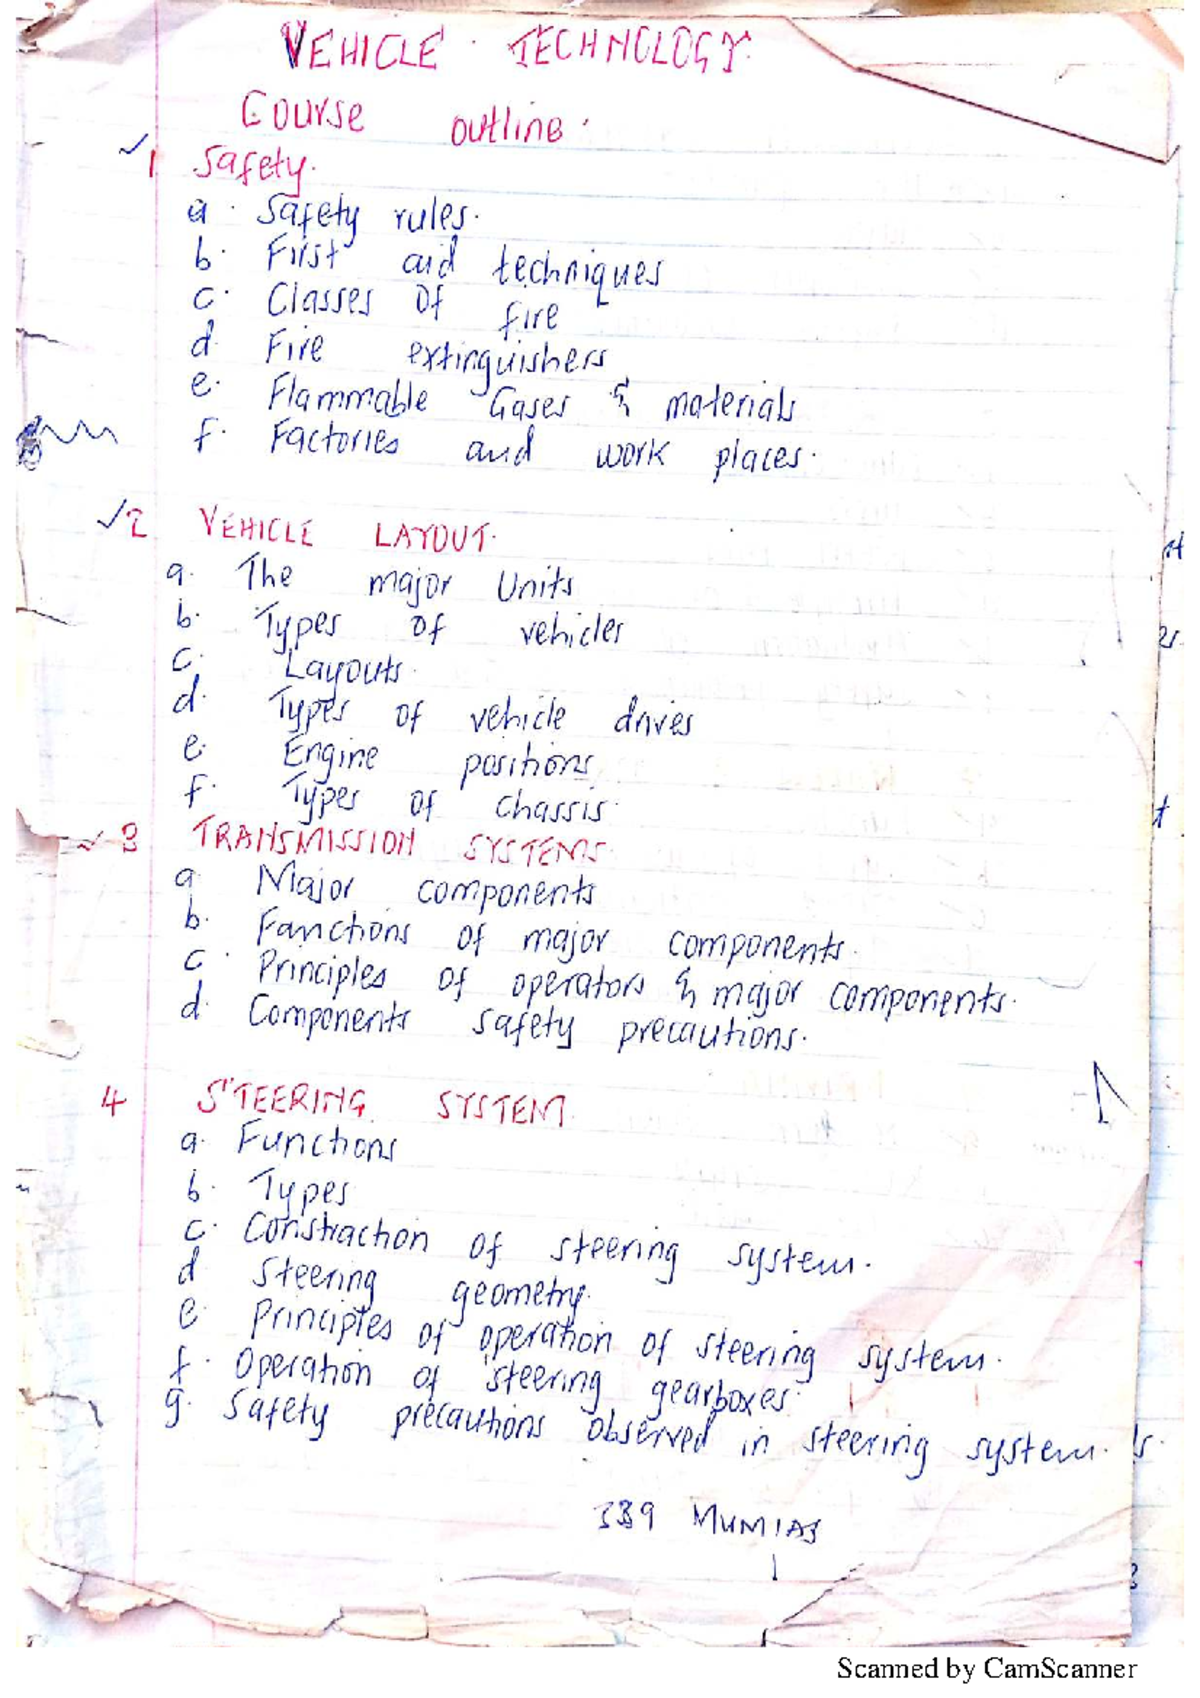 VEHICLE TECHNOLOGY.
Course outline.
1 Safety.
a. Safety rules.
b. First aid techniques
c. Classes of fire
d. Fire extinguishers
e. Flammable Gases & materials
f. Factories and work places.
2 VEHICLE LAYOUT.
a. The major Units
b. Types of vehicles
c. Layouts.
d. Types of vehicle drives
e. Engine positions
f. Types of chassis.
3 TRANSMISSION SYSTEMS
a Major components
b. Functions of major components.
c. Principles of operators & major components.
d. Components safety precautions.
4 STEERING SYSTEM.
a. Functions
b. Types
c. Constraction of steering system.
d Steering geometry.
e. Principles of operation of steering system.
f. Operation of steering gearboxes.
g. Safety precautions observed in steering system.
339 MUMIAS
Scanned by CamScanner